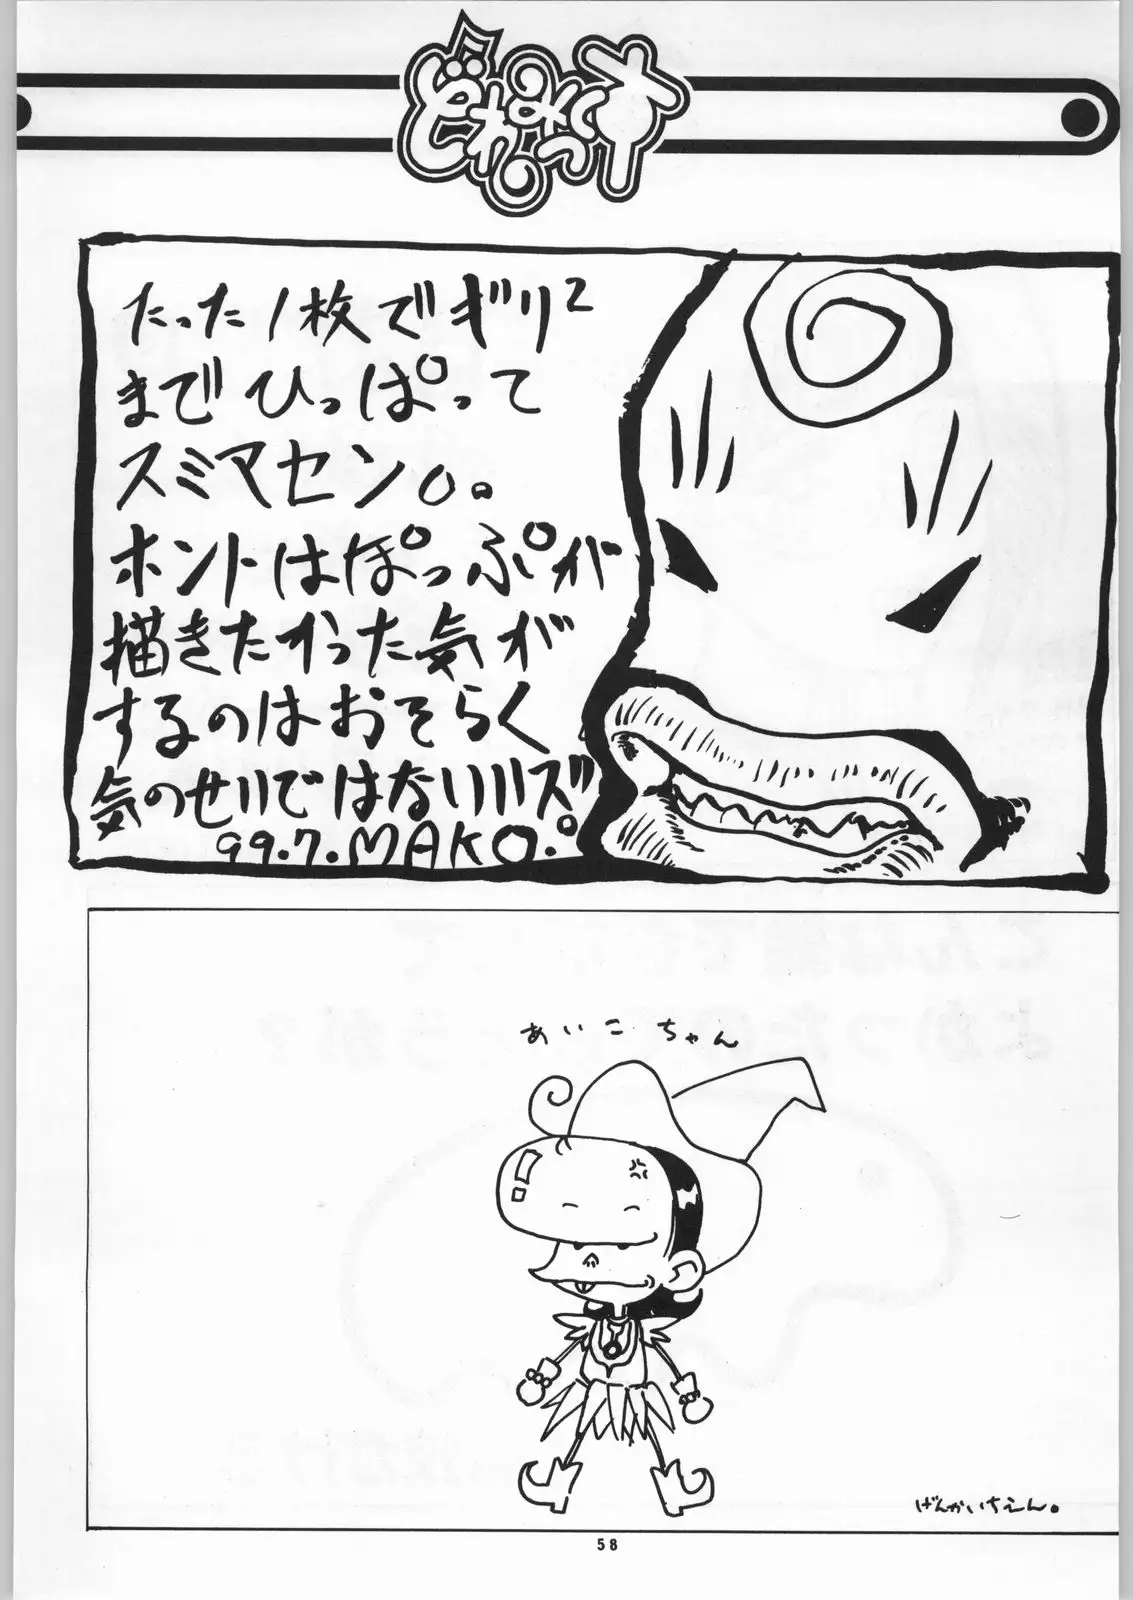 どれみっ中
たった1枚でギリ²
までひっぱって
スミマセン。。
ホントはぽっぷが
描きたかった気が
するのはおそらく
気のせいではないハズ
99.7.MAKO.
あいこちゃん
げんかいちえん。
58